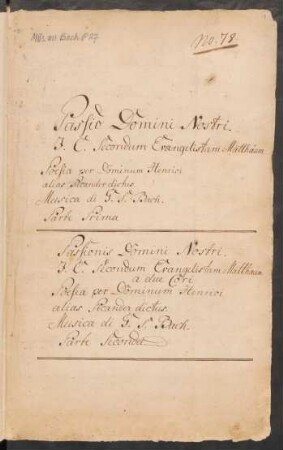 No: 78.
Passio Domini Nostri.
J. C. Secondum Evangelistam Matthæum
Poesia per Dominum Henrici
alias Picander dictus
Musica di G. S. Bach.
Parte Prima
Passionis Domini Nostri.
J. C. Secondum Evangelistam Matthæum
a due Cori
Poesia per Dominum Henrici
alias Picander dictus.
Musica di G. S. Bach.
Parte Seconda